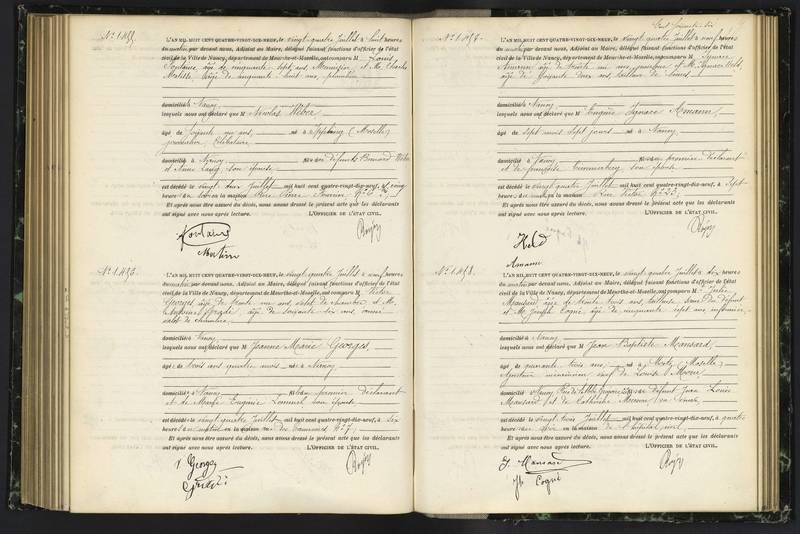 N° 1.455.
L'AN MIL HUIT CENT QUATRE-VINGT-DIX-NEUF, le vingt-quatre Juillet à huit heures
du matin par devant nous, Adjoint au Maire, délégué faisant fonctions d'officier de l'état
civil de la Ville de Nancy, département de Meurthe-et-Moselle, ont comparu M Louis
Fontaine, âgé de cinquante ans, Menuisier et M. Charles
âgé de cinquante huit ans,
domiciliés à Nancy
lesquels nous ont déclaré que M Nicolas Wéber
âgé de soixante un ans, né à (Moselle)
Célibataire
domicilié à Nancy fils de défunts Bernard Wéber
et Anne Lang son épouse
est décédé le vingt deux Juillet mil huit cent quatre-vingt-dix-neuf, à cinq
heures du soir en la maison Pierre Fourrier N°
Et après nous être assuré du décès, nous avons dressé le présent acte que les déclarants
ont signé avec nous après lecture. L'OFFICIER DE L'ÉTAT CIVIL,
Fontaine
N° 1.456.
L'AN MIL HUIT CENT QUATRE-VINGT-DIX-NEUF, le vingt quatre Juillet à neuf heures
du matin par devant nous, Adjoint au Maire, délégué faisant fonctions d'officier de l'état
civil de la Ville de Nancy, département de Meurthe-et-Moselle, ont comparu M Victor
Georges âgé de trente un ans, valet de chambre et M.
Antoine âgé de soixante six ans, ami
valet de chambre,
domiciliés à Nancy
lesquels nous ont déclaré que M Jeanne Marie Georges,
âgée de trois ans quatre mois née à Nancy
domiciliée à Nancy fille du premier déclarant
et de Marie Eugénie son épouse
est décédée le vingt quatre Juillet mil huit cent quatre-vingt-dix-neuf, à six
heures du matin en la maison rue des Tanneries N° 7
Et après nous être assuré du décès, nous avons dressé le présent acte que les déclarants
ont signé avec nous après lecture. L'OFFICIER DE L'ÉTAT CIVIL,
V Georges
N° 1.457.
L'AN MIL HUIT CENT QUATRE-VINGT-DIX-NEUF, le vingt quatre Juillet à neuf heures
du matin par devant nous, Adjoint au Maire, délégué faisant fonctions d'officier de l'état
civil de la Ville de Nancy, département de Meurthe-et-Moselle, ont comparu M Ignace
Amann, âgé de trente un ans, et M. Ignace Held,
âgé de soixante deux ans, tailleur de limes
domiciliés à Nancy
lesquels nous ont déclaré que M Eugène Ignace Amann,
âgé de sept mois sept jours né à Nancy,
domicilié à Nancy fils du premier déclarant
et de Françoise son épouse
est décédé le vingt quatre Juillet mil huit cent quatre-vingt-dix-neuf, à sept
heures du matin en la maison Rue Victor N° 23
Et après nous être assuré du décès, nous avons dressé le présent acte que les déclarants
ont signé avec nous après lecture. L'OFFICIER DE L'ÉTAT CIVIL,
Held
Amann
N° 1.458.
L'AN MIL HUIT CENT QUATRE-VINGT-DIX-NEUF, le vingt quatre Juillet à dix heures
du matin par devant nous, Adjoint au Maire, délégué faisant fonctions d'officier de l'état
civil de la Ville de Nancy, département de Meurthe-et-Moselle, ont comparu M Jules
Mansard, âgé de trente trois ans, du défunt
et M. Joseph Cogné, âgé de cinquante sept ans infirmier,
domiciliés à Nancy
lesquels nous ont déclaré que M Jean Baptiste Mansard,
âgé de quarante trois ans, né à Metz (Moselle)
Ajusteur mécanicien veuf de Louise
domicilié à Nancy fils de défunt Jean Louis
Mansard et de Catherine sa veuve
est décédé le vingt trois Juillet mil huit cent quatre-vingt-dix-neuf, à quatre
heures du soir en la maison de l'hôpital civil
Et après nous être assuré du décès, nous avons dressé le présent acte que les déclarants
ont signé avec nous après lecture. L'OFFICIER DE L'ÉTAT CIVIL,
J. Mansard
Jh Cogné